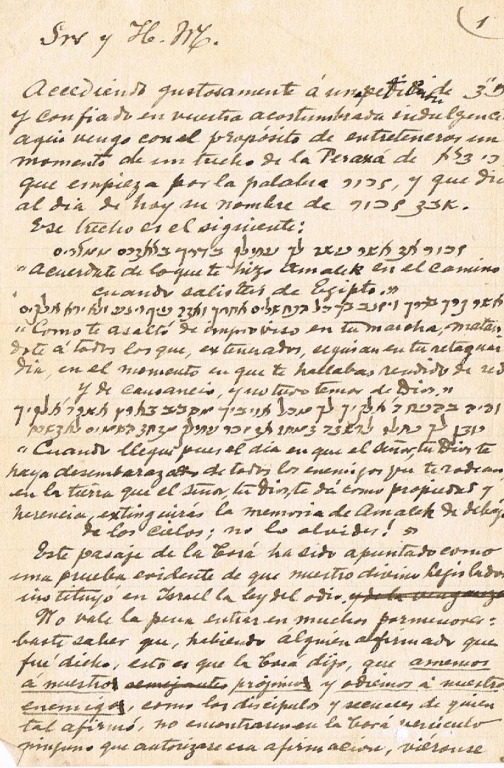 Srs y H. M.
1
Accediendo gustosamente á una petición de
y confiado en vuestra acostumbrada indulgencia
aquí vengo con el propósito de entreteneros un
momento de un trecho de la Peraxá de כי תצא
que empieza por la palabra זכור, y que dió
al dia de hoy su nombre de שבת זכור.
Ese trecho es el siguiente:
זכור את אשר עשה לך עמלק בדרך בצאתכם ממצרים
"Acuerdate de lo que te hizo Amalek en el camino
cuando salistes de Egipto."
אשר קרך בדרך ויזנב בך כל הנחשלים אחריך ואתה עיף ויגע ולא ירא אלקים
"Como te asaltó de improviso en tu marcha, matan
dote á todos los que, extenuados, seguian en tu retaguar
dia, en el momento en que te hallabas rendido de sed
y de cansancio, y no tuvo temor de Dios."
והיה בהניח ה' אלקיך לך מכל אויביך מסביב בארץ אשר ה' אלקיך
נותן לך נחלה לרשתה תמחה את זכר עמלק מתחת השמים לא תשכח
"Cuando llegue pues el dia en que el Señor, tu Dios te
haya desembarazado de todos los enemigos que te rodean
en la tierra que el Señor, tu Dios, te dá como propiedad y
herencia, extinguirás la memoria de Amalek de debajo
de los cielos; no lo olvides!"
Este pasaje de la Torá ha sido apuntado como
una prueba evidente de que nuestro divino Legislador
instituyó en Israel la ley del odio y de la venganza
No vale la pena entrar en muchos pormenores:
baste saber que, habiendo alguien afirmado que
fué dicho, esto es que la Torá dijo, que amemos
á nuestros semejantes prójimos y odiemos á nuestros
enemigos, como los discípulos y secuaces de quien
tal afirmó, no encontrasen en la Torá versículo
ninguno que autorizase esa afirmación, viéronse